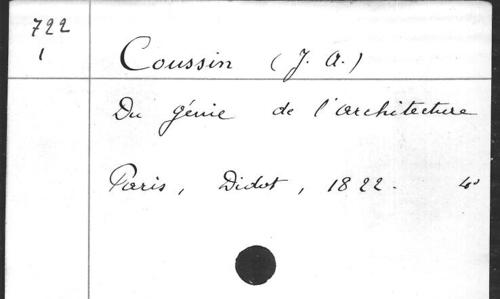 722
1
Coussin (J. A.)
Du génie de l'architecture
Paris, Didot, 1822. 4°